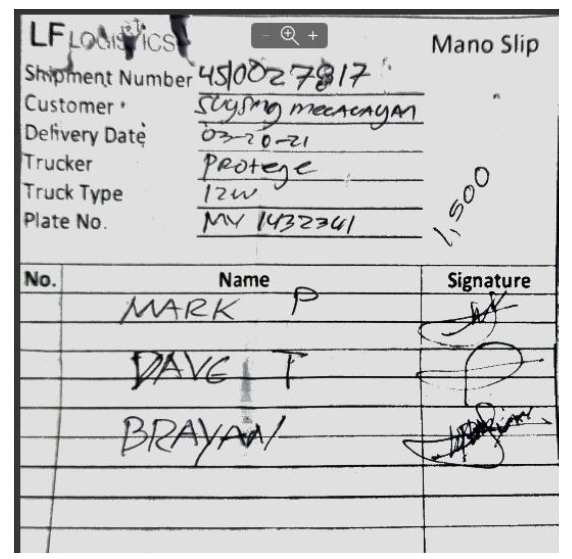 LF LOGISTICS
Mano Slip
Shipment Number 4510027817
Customer Suysing mecacayan
Delivery Date 03-20-21
Trucker Protege
Truck Type 12W
Plate No. MY 1432341
1,500
No. Name Signature
MARK P
DAVE T
BRAYAN